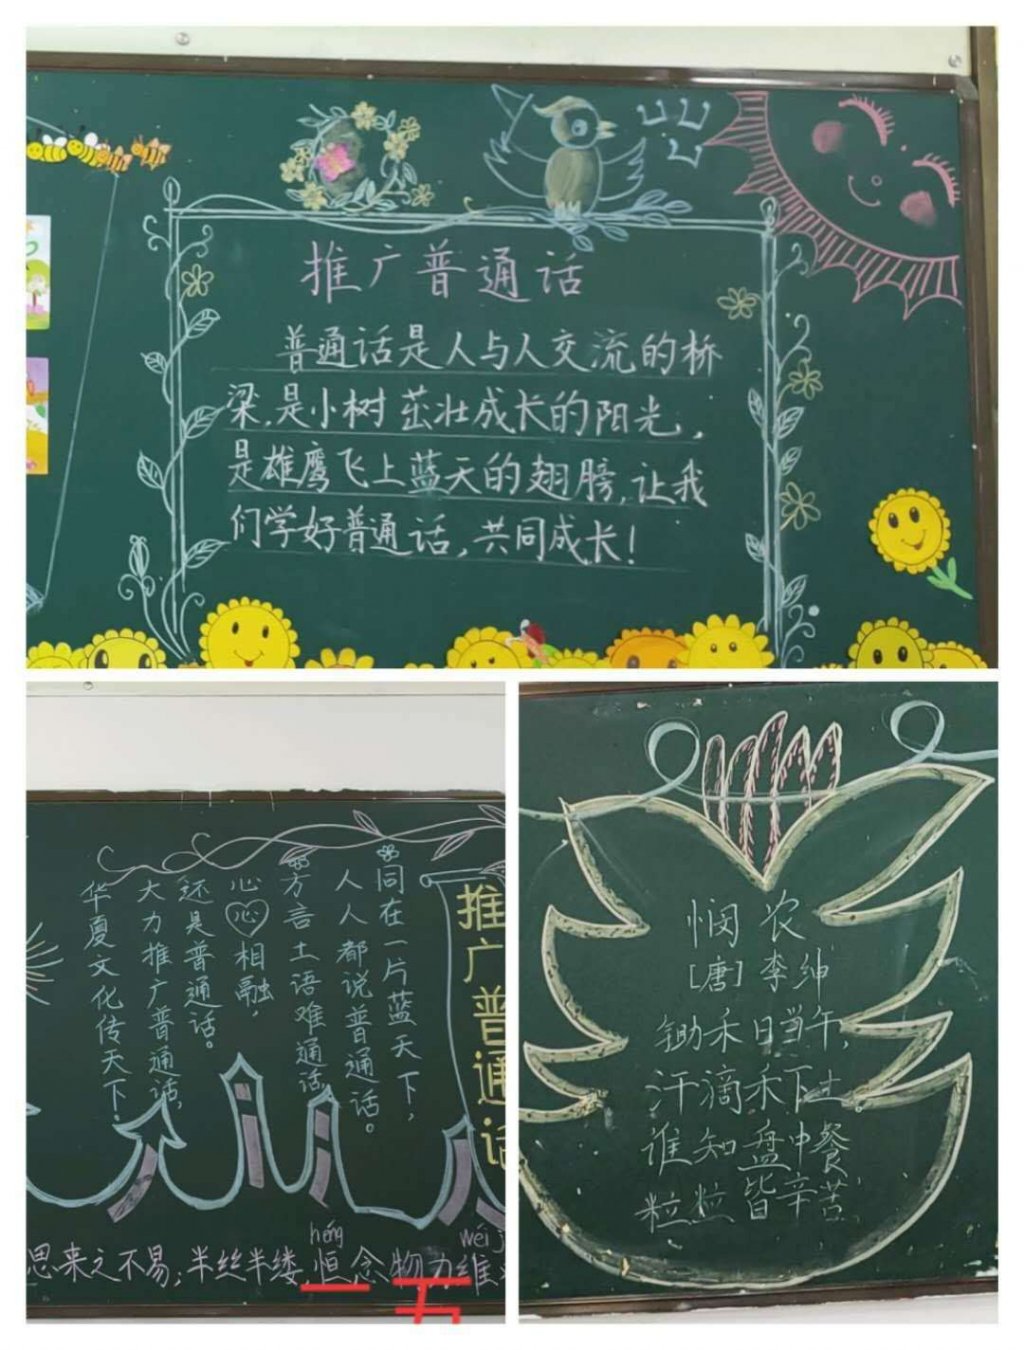 推广普通话
普通话是人与人交流的桥
梁,是小树茁壮成长的阳光,
是雄鹰飞上蓝天的翅膀,让我
们学好普通话,共同成长!
推广普通话
同在一片蓝天下,
人人都说普通话。
方言土语难通话,
心心相融,
还是普通话。
大力推广普通话,
华夏文化传天下.
héng
wéi
思来之不易;半丝半缕,恒念物力维
悯农
[唐]李绅
锄禾日当午,
汗滴禾下土。
谁知盘中餐
粒粒皆辛苦